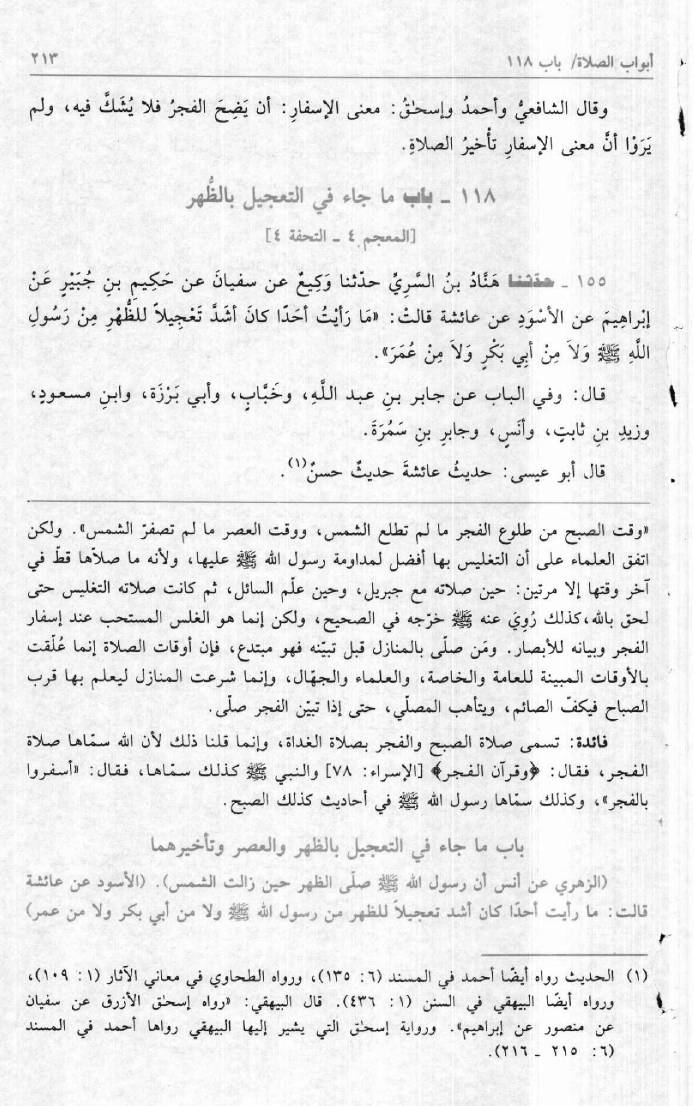 أبواب الصلاة/ باب ١١٨
٢١٣
وقال الشافعيُّ وأحمدُ وإسحٰقُ: معنى الإسفارِ: أن يَضِحَ الفجرُ فلا يُشَكَّ فيه، ولم
يَرَوْا أنَّ معنى الإسفارِ تأْخيرُ الصلاةِ.
١١٨ ـ باب ما جاء في التعجيل بالظُّهر
[المعجم ٤ ـ التحفة ٤]
١٥٥ ـ حدّثنا هَنَّادُ بنُ السَّرِيِّ حدّثنا وَكِيعٌ عن سفيانَ عن حَكِيمِ بنِ جُبَيْرٍ عَنْ
إبْراهِيمَ عن الأسْوَدِ عن عائشة قالتْ: «مَا رَأيْتُ أحَدًا كانَ أشَدَّ تَعْجِيلاً للظُّهْرِ مِنْ رَسُولِ
اللَّهِ ﷺ وَلاَ مِنْ أبِي بَكْرٍ وَلاَ مِنْ عُمَرَ».
قال: وفي الباب عن جابر بنِ عبد اللَّهِ، وخَبَّابٍ، وأبي بَرْزَة، وابنِ مسعودٍ،
وزيدِ بنِ ثابتٍ، وأنَسٍ، وجابرِ بنِ سَمُرَةَ.
قال أبو عيسى: حديثُ عائشةَ حديثٌ حسنٌ(١).
«وقت الصبح من طلوع الفجر ما لم تطلع الشمس، ووقت العصر ما لم تصفرّ الشمس». ولكن
اتفق العلماء على أن التغليس بها أفضل لمداومة رسول الله ﷺ عليها، ولأنه ما صلاّها قطّ في
آخر وقتها إلا مرتين: حين صلاته مع جبريل، وحين علّم السائل، ثم كانت صلاته التغليس حتى
لحق بالله،كذلك رُوِيَ عنه ﷺ خرّجه في الصحيح، ولكن إنما هو الغلس المستحب عند إسفار
الفجر وبيانه للأبصار. ومَن صلّى بالمنازل قبل تبيّنه فهو مبتدع، فإن أوقات الصلاة إنما عُلّقت
بالأوقات المبينة للعامة والخاصة، والعلماء والجهّال، وإنما شرعت المنازل ليعلم بها قرب
الصباح فيكفّ الصائم، ويتأهب المصلّي، حتى إذا تبيّن الفجر صلّى.
فائدة: تسمى صلاة الصبح والفجر بصلاة الغداة، وإنما قلنا ذلك لأن الله سمّاها صلاة
الفجر، فقال: ﴿وقرآن الفجر﴾ [الإسراء: ٧٨] والنبي ﷺ كذلك سمّاها، فقال: «أسفروا
بالفجر»، وكذلك سمّاها رسول الله ﷺ في أحاديث كذلك الصبح.
باب ما جاء في التعجيل بالظهر والعصر وتأخيرهما
(الزهري عن أنس أن رسول الله ﷺ صلّى الظهر حين زالت الشمس). (الأسود عن عائشة
قالت: ما رأيت أحدًا كان أشد تعجيلاً للظهر من رسول الله ﷺ ولا من أبي بكر ولا من عمر)
(١) الحديث رواه أيضًا أحمد في المسند (٦: ١٣٥)، ورواه الطحاوي في معاني الآثار (١: ١٠٩)،
ورواه أيضًا البيهقي في السنن (١: ٤٣٦). قال البيهقي: «رواه إسحٰق الأزرق عن سفيان
عن منصور عن إبراهيم». ورواية إسحٰق التي يشير إليها البيهقي رواها أحمد في المسند
(٦: ٢١٥ ـ ٢١٦).